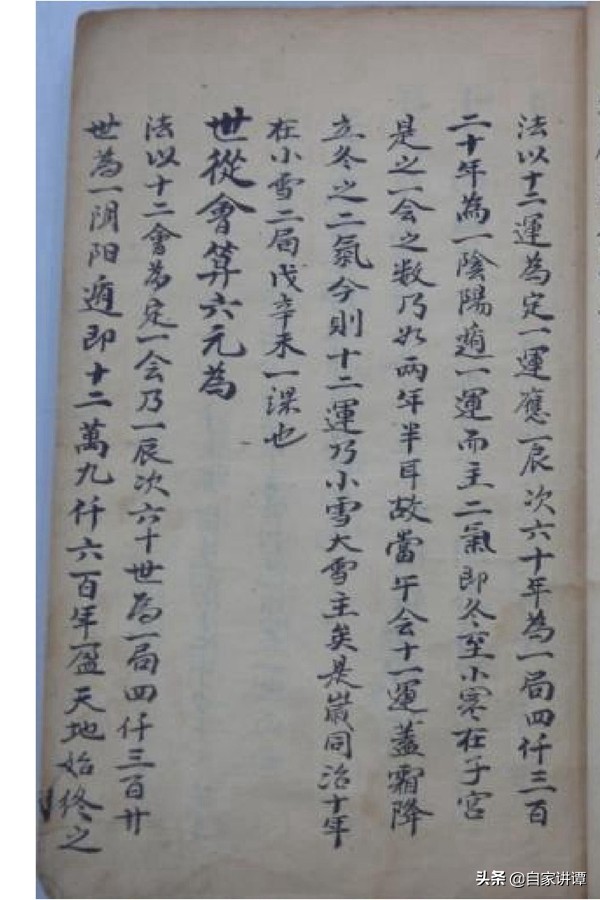 法以十二運為定一運應一辰次六十年為一局四仟三百
二十年為一陰陽遁一運而主二氣即冬至小寒在子宮
是之一会之数乃如兩年半耳故當午会十一運蓋霜降
立冬之二氣今則十二運乃小雪大雪主矣是嵗同治十年
在小雪二局戊辛未一課也
世從會算六元為
法以十二會為定一会乃一辰次六十世為一局四仟三百廾
世為一阴阳遁即十二萬九仟六百年一盈天地始终之
头条 @自家讲谭